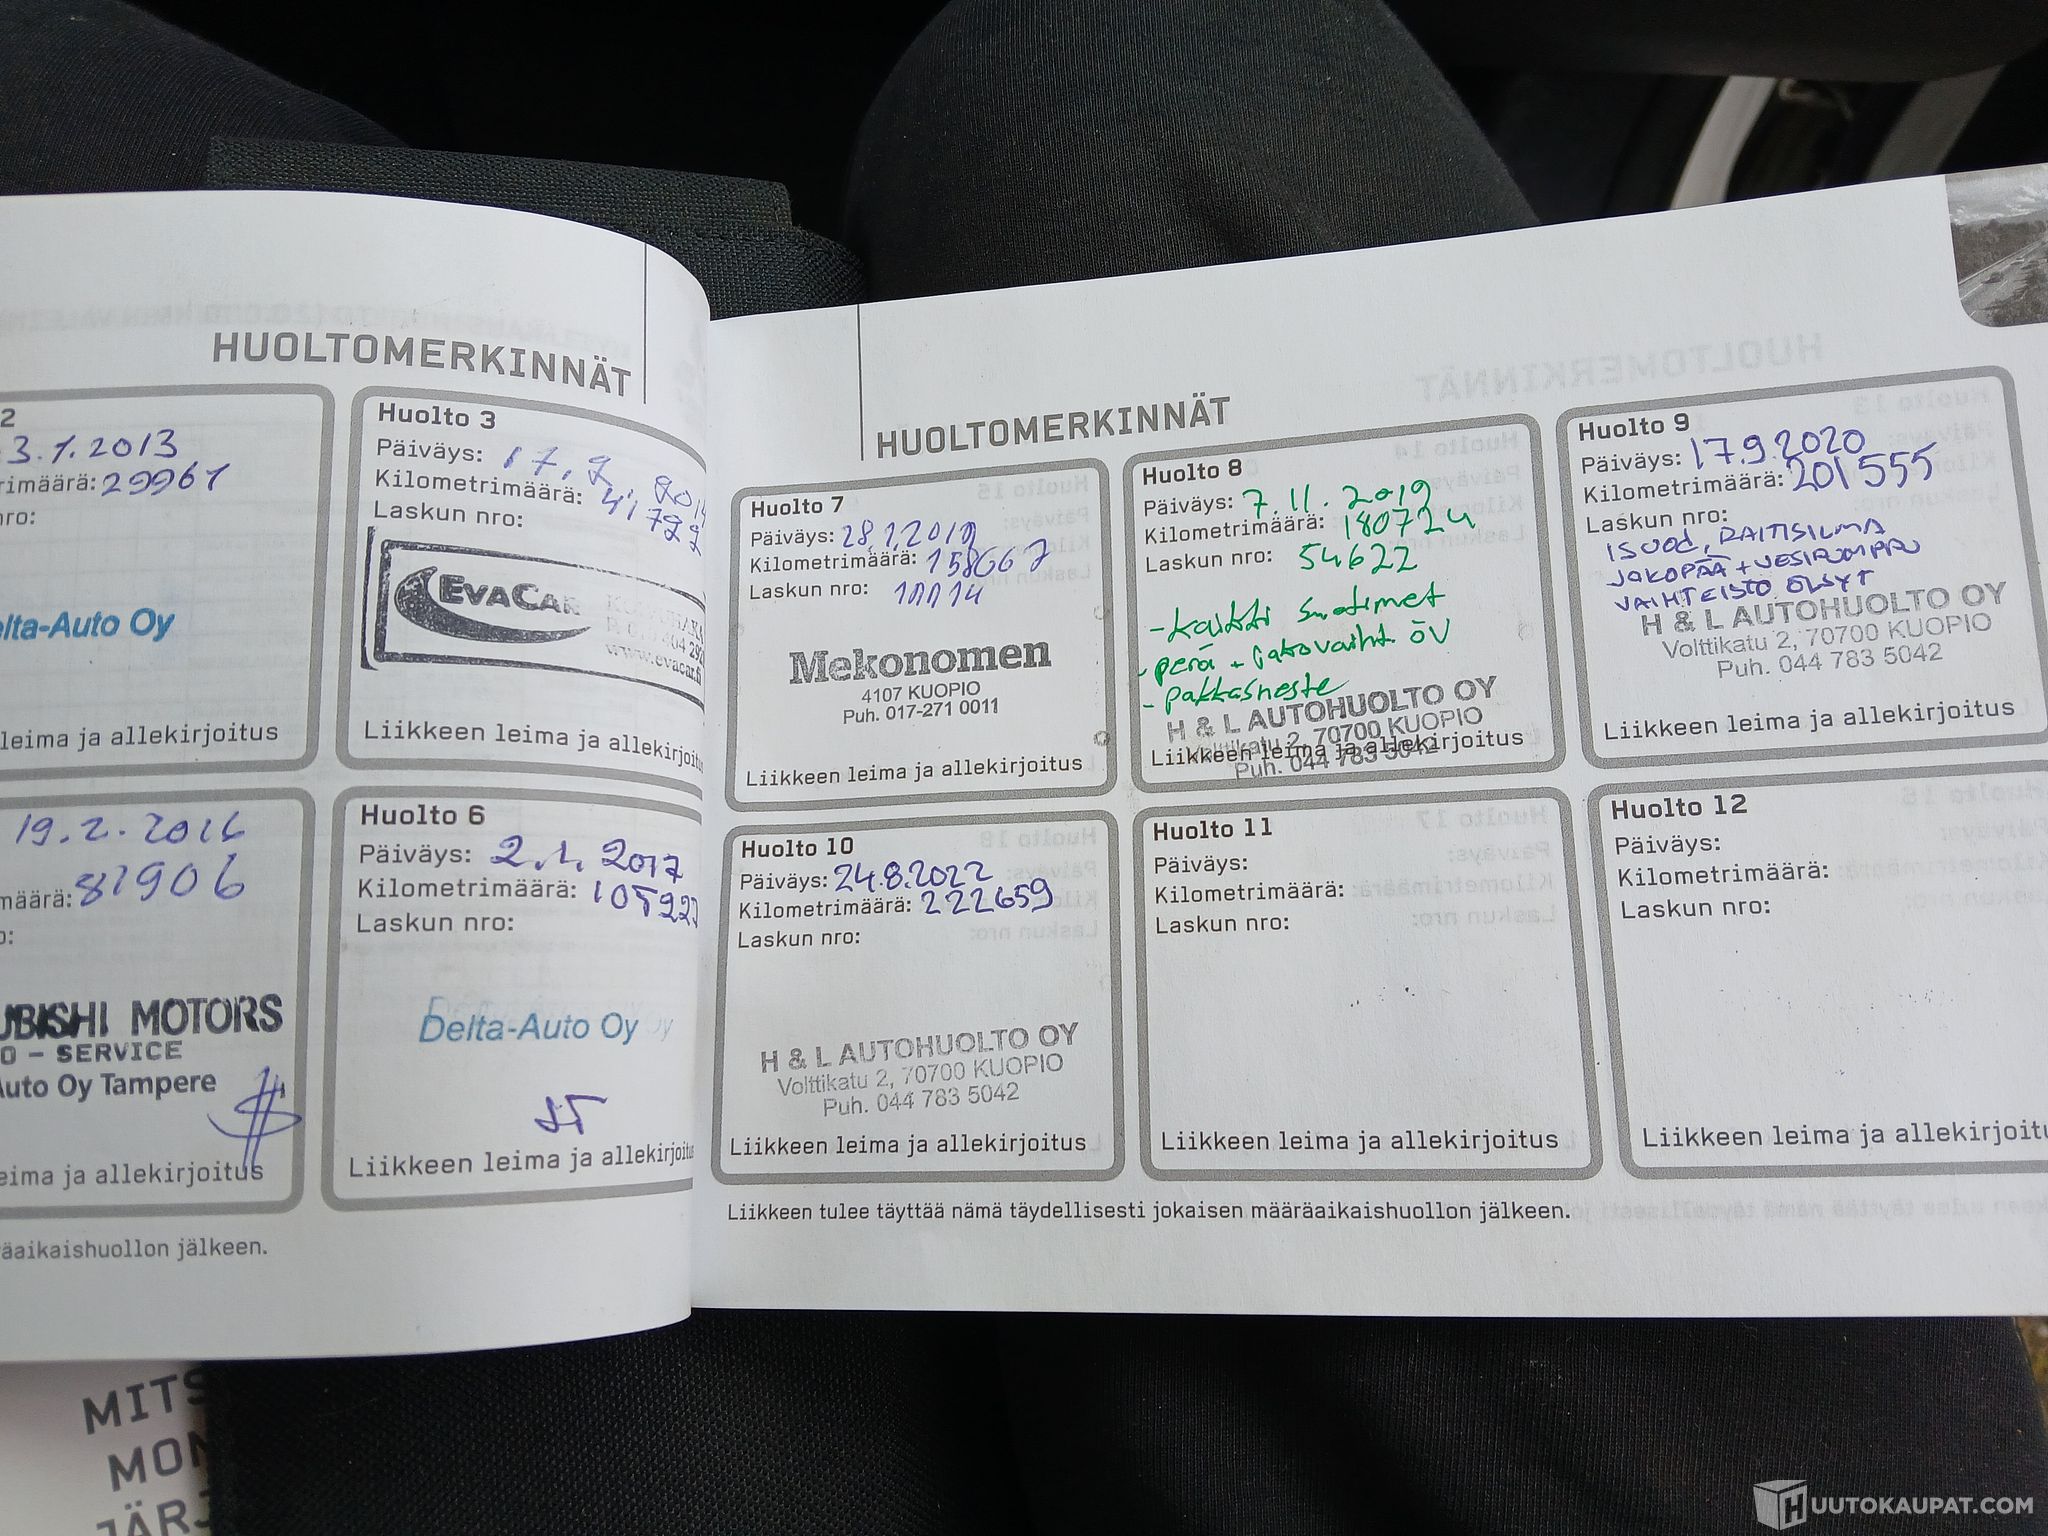 HUOLTOMERKINNÄT
2
3.1.2013
rimäärä: 29961
nro:
elta-Auto Oy
leima ja allekirjoitus
Huolto 3
Päiväys: 17.2.2014
Kilometrimäärä: 41722
Laskun nro:
EVACAR
www.evacar.fi
Liikkeen leima ja allekirjoitu
19.2.2016
määrä: 81906
o:
UBISHI MOTORS
O - SERVICE
Auto Oy Tampere
eima ja allekirjoitus
Huolto 6
Päiväys: 2.1.2017
Kilometrimäärä: 105227
Laskun nro:
Delta-Auto Oy
Liikkeen leima ja allekirjoitus
räaikaishuollon jälkeen.
HUOLTOMERKINNÄT
Huolto 7
Päiväys: 28.1.2019
Kilometrimäärä: 158667
Laskun nro: 10014
Mekonomen
4107 KUOPIO
Puh. 017-271 0011
Liikkeen leima ja allekirjoitus
Huolto 8
Päiväys: 7.11.2019
Kilometrimäärä: 180724
Laskun nro: 54622
- kaikki suodattimet
- perä + jakovaiht. ÖV
- pakkasneste
H & L AUTOHUOLTO OY
Volttikatu 2, 70700 KUOPIO
Liikkeen leima ja allekirjoitus
Puh. 044 783 5042
Huolto 9
Päiväys: 17.9.2020
Kilometrimäärä: 201555
Laskun nro:
ISUOD, RAITISILMA
JAKOPÄÄ + VESIPUMPPU
VAIHTEISTO ÖLJYT
H & L AUTOHUOLTO OY
Volttikatu 2, 70700 KUOPIO
Puh. 044 783 5042
Liikkeen leima ja allekirjoitus
Huolto 10
Päiväys: 24.8.2022
Kilometrimäärä: 222659
Laskun nro:
H & L AUTOHUOLTO OY
Volttikatu 2, 70700 KUOPIO
Puh. 044 783 5042
Liikkeen leima ja allekirjoitus
Huolto 11
Päiväys:
Kilometrimäärä:
Laskun nro:
Liikkeen leima ja allekirjoitus
Huolto 12
Päiväys:
Kilometrimäärä:
Laskun nro:
Liikkeen leima ja allekirjoitu
Liikkeen tulee täyttää nämä täydellisesti jokaisen määräaikaishuollon jälkeen.
MITS
MON
JÄRJ
HUUTOKAUPAT.COM